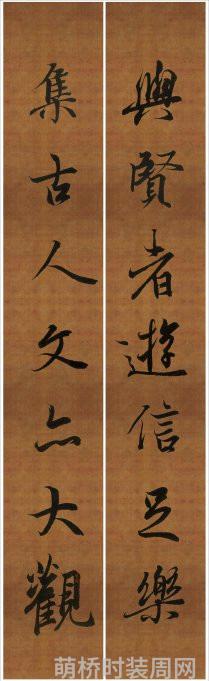 與賢者遊信足樂
集古人文亦大觀
萌桥时装周网